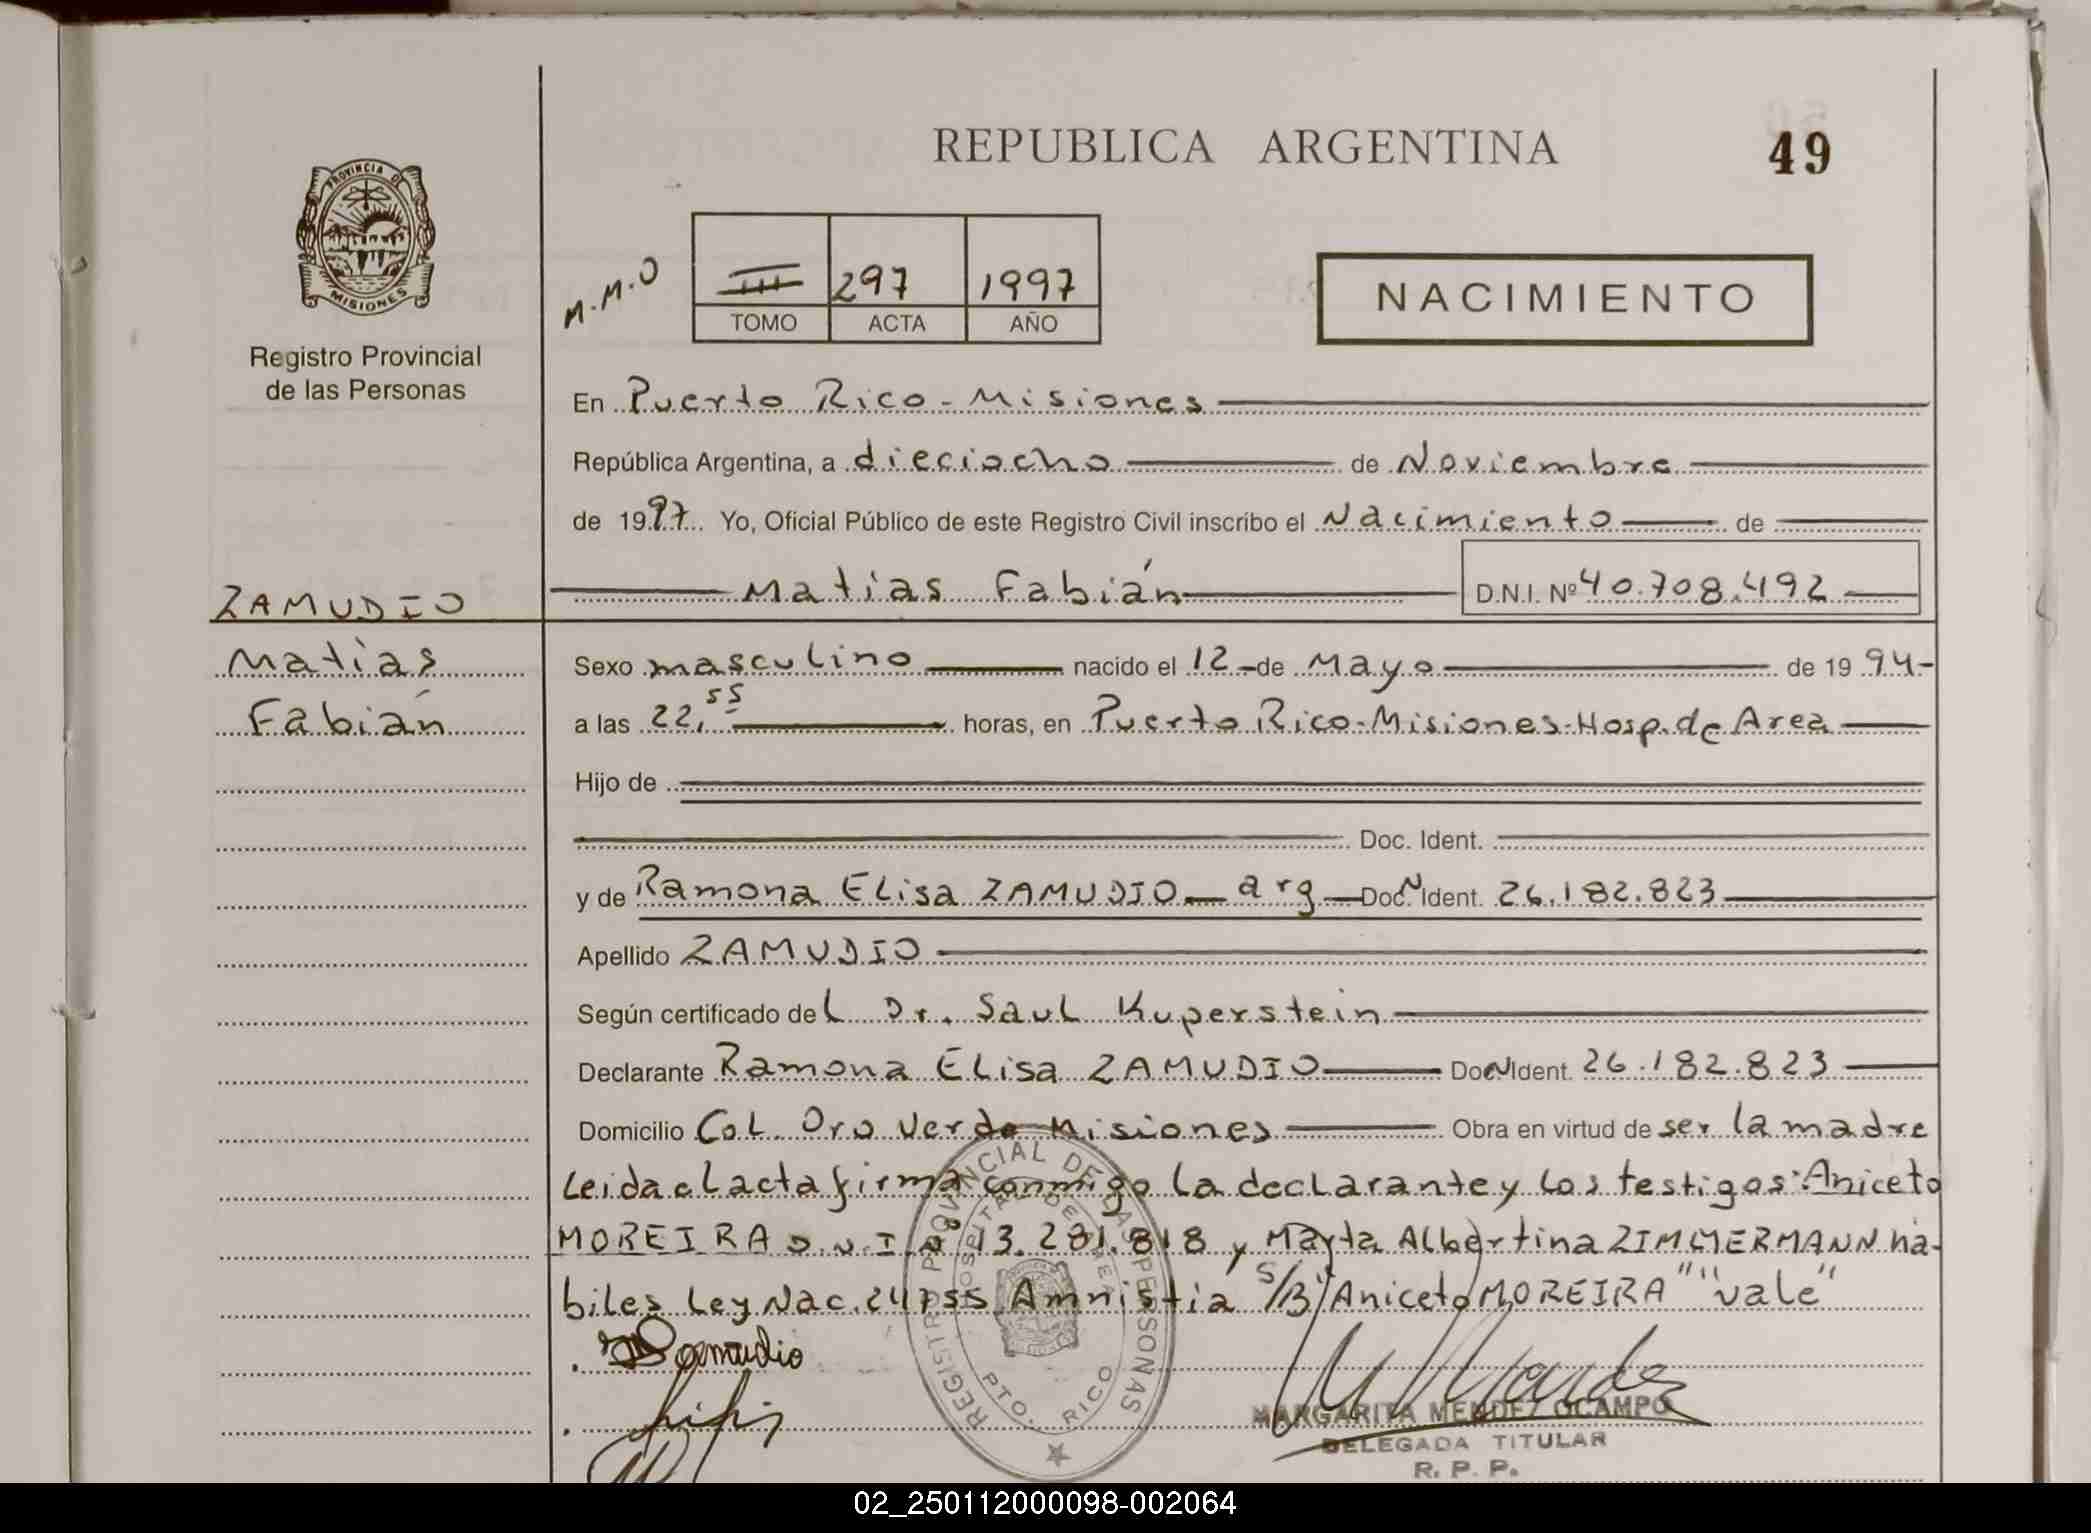 REPUBLICA ARGENTINA
49
PROVINCIA DE
MISIONES
Registro Provincial
de las Personas
M.M.O
III 297 1997
TOMO ACTA AÑO
NACIMIENTO
En Puerto Rico - Misiones
República Argentina, a dieciocho de Noviembre
de 1997 Yo, Oficial Público de este Registro Civil inscribo el Nacimiento de
Matías Fabián D.N.I. Nº 40.708.492
ZAMUDIO
Matías
Fabián
Sexo masculino nacido el 12 de Mayo de 1994-
a las 22,55 horas, en Puerto Rico-Misiones-Hosp. de Area
Hijo de
Doc. Ident.
y de Ramona Elisa ZAMUDIO arg Doc. Ident. 26.182.823
Apellido ZAMUDIO
Según certificado del Dr. Saul Kuperstein
Declarante Ramona Elisa ZAMUDIO Doc. Ident. 26.182.823
Domicilio Col. Oro Verde Misiones Obra en virtud de ser la madre
Leida el acta firma conmigo la declarante y los testigos: Aniceto
MOREIRA D.N.I. Nº 13.281.818 y Marta Albertina ZIMMERMANN há-
biles Ley Nac. 24755 Amnistia S/B "Aniceto MOREIRA" "vale"
Zamudio
REGISTRO PROVINCIAL DE LAS PERSONAS
PTO. RICO
MARGARITA MENDEZ OCAMPO
DELEGADA TITULAR
R. P. P.
02_250112000098-002064